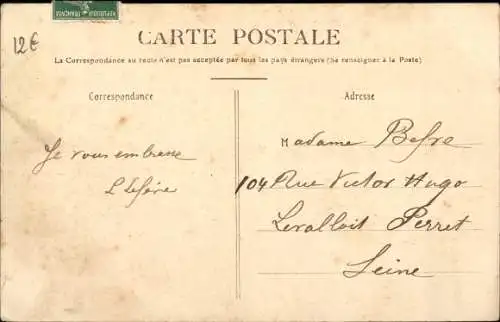 12€
CARTE POSTALE
La Correspondance au recto n'est pas acceptée par tous les pays étrangers (Se renseigner à la Poste)
Correspondance
Adresse
Je vous embrasse
Madame Befre
104 Rue Victor Hugo
Levallois Perret
Seine